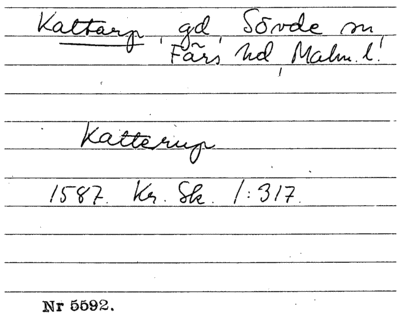 Kattarp, gd, Sövde sn,
Färs hd, Malm. l.
Katterup
1587. Kr. Sk. 1:317.
Nr 5592.